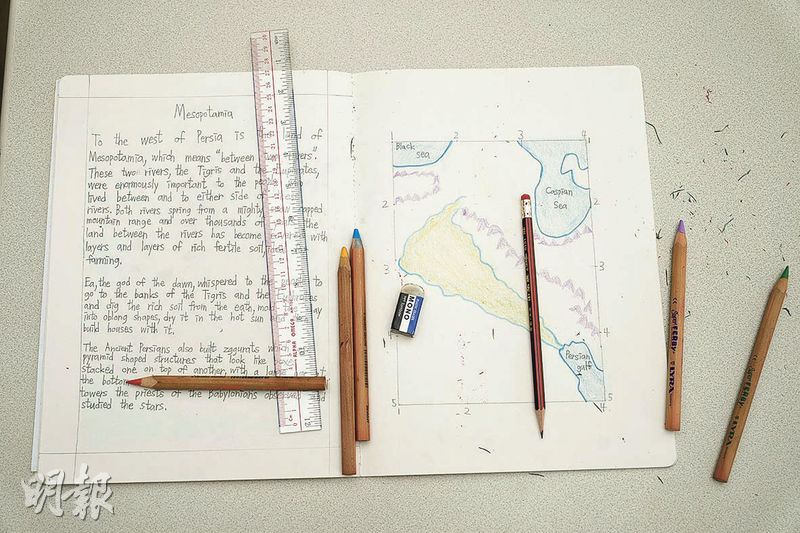 Mesopotamia
To the west of Persia is land of
Mesopotamia, which means "between rivers."
These two rivers, the Tigris and the
were enormously important to the
lived between and to either side of
rivers. Both rivers spring from a mighty
mountain range and over thousands of the
land between the rivers has become with
layers and layers of rich fertile soil,
farming.
Ea, the god of the dawn, whispered to the to
go to the banks of the Tigris and the
and dig the rich soil from the eath,
into oblong shapes, dry it in the hot sun
build houses with it.
The Ancient Persians also built
pyramid shaped structures that look like
stacked one on top of another, with a
the bottom
towers the priests of the Babylonians
studied the stars.
1 2 3 4
Black
sea
Caspian
Sea
2 2
3 3
4
Persian
gulf
5 2 5
MONO
FERBY LYRA
FERBY LYRA
明報